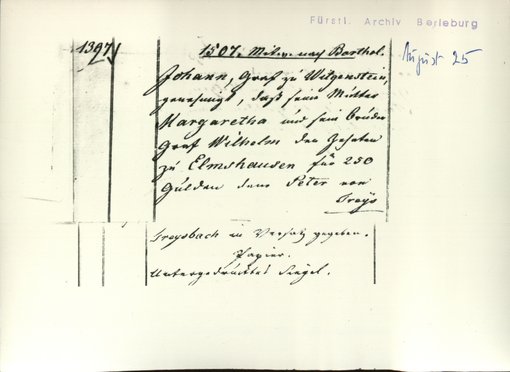 Fürstl. Archiv Berleburg
August 25
1397
1507. Mitw. nach Barthol.
Johann, Graf zu Witgenstein,
genehmigt, daß seine Mutter
Margaretha und sein Bruder
Graf Wilhelm den Zehnten
zu Elmshausen für 250
Gulden dem Peter von
Treys
Treysbach in Versatz gegeben.
Papier.
Untergedrücktes Siegel.